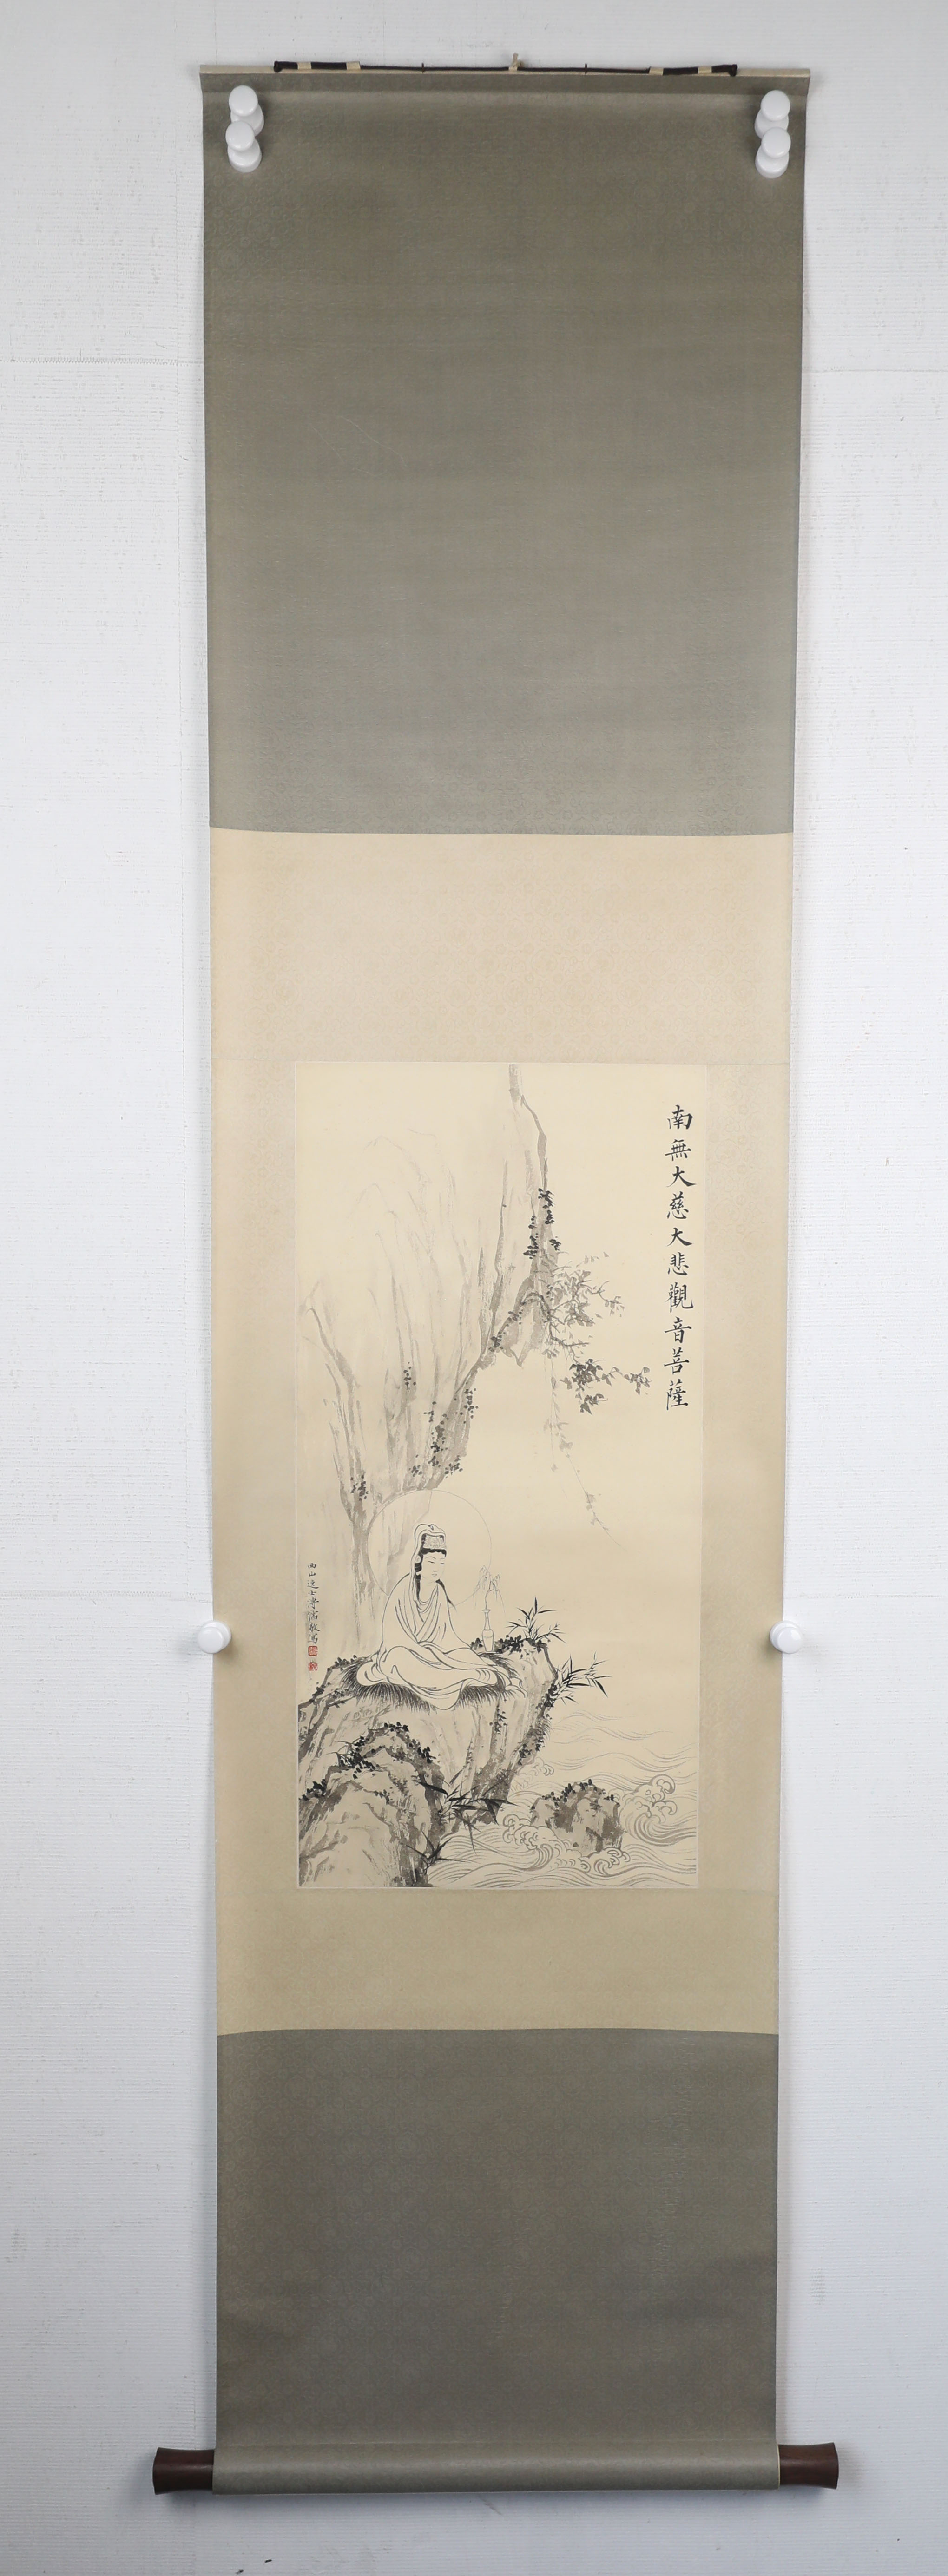 南無大慈大悲觀音菩薩
西山逸士溥儒敬寫